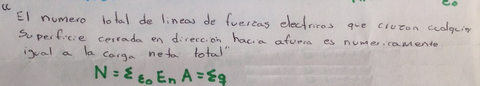 "El numero total de lineas de fuerzas electricos que cruzan cualquier
Superficie cerrada en dirección hacia afuera es numericamente
igual a la carga neta total"
N = Σ ε₀ En A = Σq